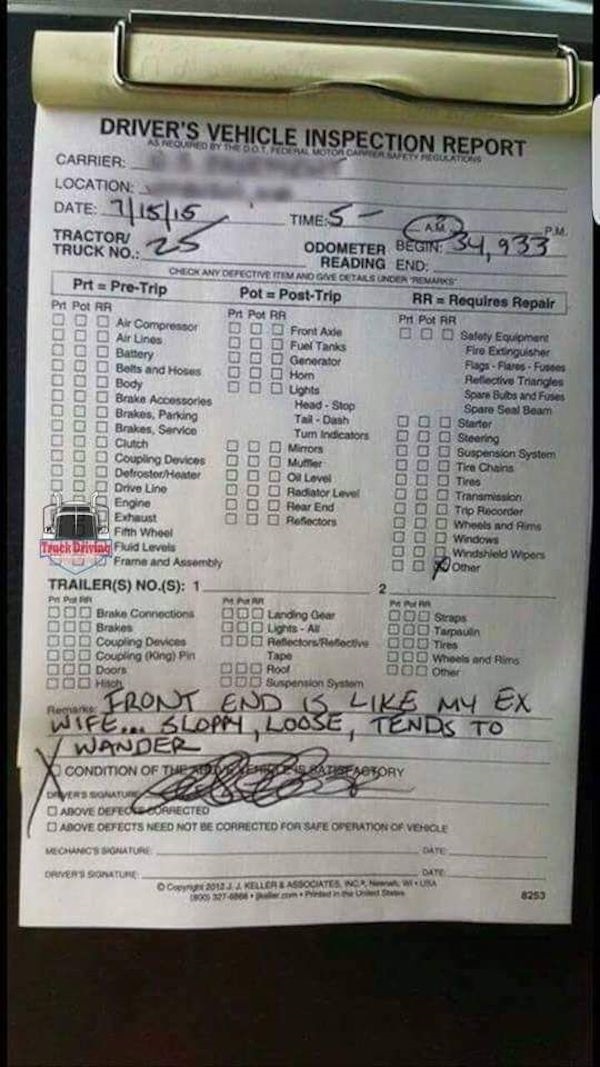 DRIVER'S VEHICLE INSPECTION REPORT
AS REQUIRED BY THE D.O.T. FEDERAL MOTOR CARRIER SAFETY REGULATIONS
CARRIER:
LOCATION:
DATE: 7/15/15 TIME: 5 - A.M. P.M.
TRACTOR/
TRUCK NO.: 25
ODOMETER BEGIN: 34,933
READING END:
CHECK ANY DEFECTIVE ITEM AND GIVE DETAILS UNDER "REMARKS"
Prt = Pre-Trip Pot = Post-Trip RR = Requires Repair
Prt Pot RR
Air Compressor
Air Lines
Battery
Belts and Hoses
Body
Brake Accessories
Brakes, Parking
Brakes, Service
Clutch
Coupling Devices
Defroster/Heater
Drive Line
Engine
Exhaust
Fifth Wheel
Fluid Levels
Frame and Assembly
Truck Driving
Prt Pot RR
Front Axle
Fuel Tanks
Generator
Horn
Lights
Head - Stop
Tail - Dash
Turn Indicators
Mirrors
Muffler
Oil Level
Radiator Level
Rear End
Reflectors
Prt Pot RR
Safety Equipment
Fire Extinguisher
Flags - Flares - Fusees
Reflective Triangles
Spare Bulbs and Fuses
Spare Seal Beam
Starter
Steering
Suspension System
Tire Chains
Tires
Transmission
Trip Recorder
Wheels and Rims
Windows
Windshield Wipers
X Other
TRAILER(S) NO.(S): 1 2
Prt Pot RR
Brake Connections
Brakes
Coupling Devices
Coupling (King) Pin
Doors
Hitch
Prt Pot RR
Landing Gear
Lights - All
Reflectors/Reflective
Tape
Roof
Suspension System
Prt Pot RR
Straps
Tarpaulin
Tires
Wheels and Rims
Other
Remarks: FRONT END IS LIKE MY EX
WIFE... SLOPPY, LOOSE, TENDS TO
WANDER
X CONDITION OF THE ABOVE VEHICLE IS SATISFACTORY
DRIVER'S SIGNATURE
ABOVE DEFECTS CORRECTED
ABOVE DEFECTS NEED NOT BE CORRECTED FOR SAFE OPERATION OF VEHICLE
MECHANIC'S SIGNATURE: DATE
DRIVER'S SIGNATURE: DATE
© Copyright 2012 J. J. KELLER & ASSOCIATES, INC.®, Neenah, WI • USA
(800) 327-6868 • jjkeller.com • Printed in the United States
8253